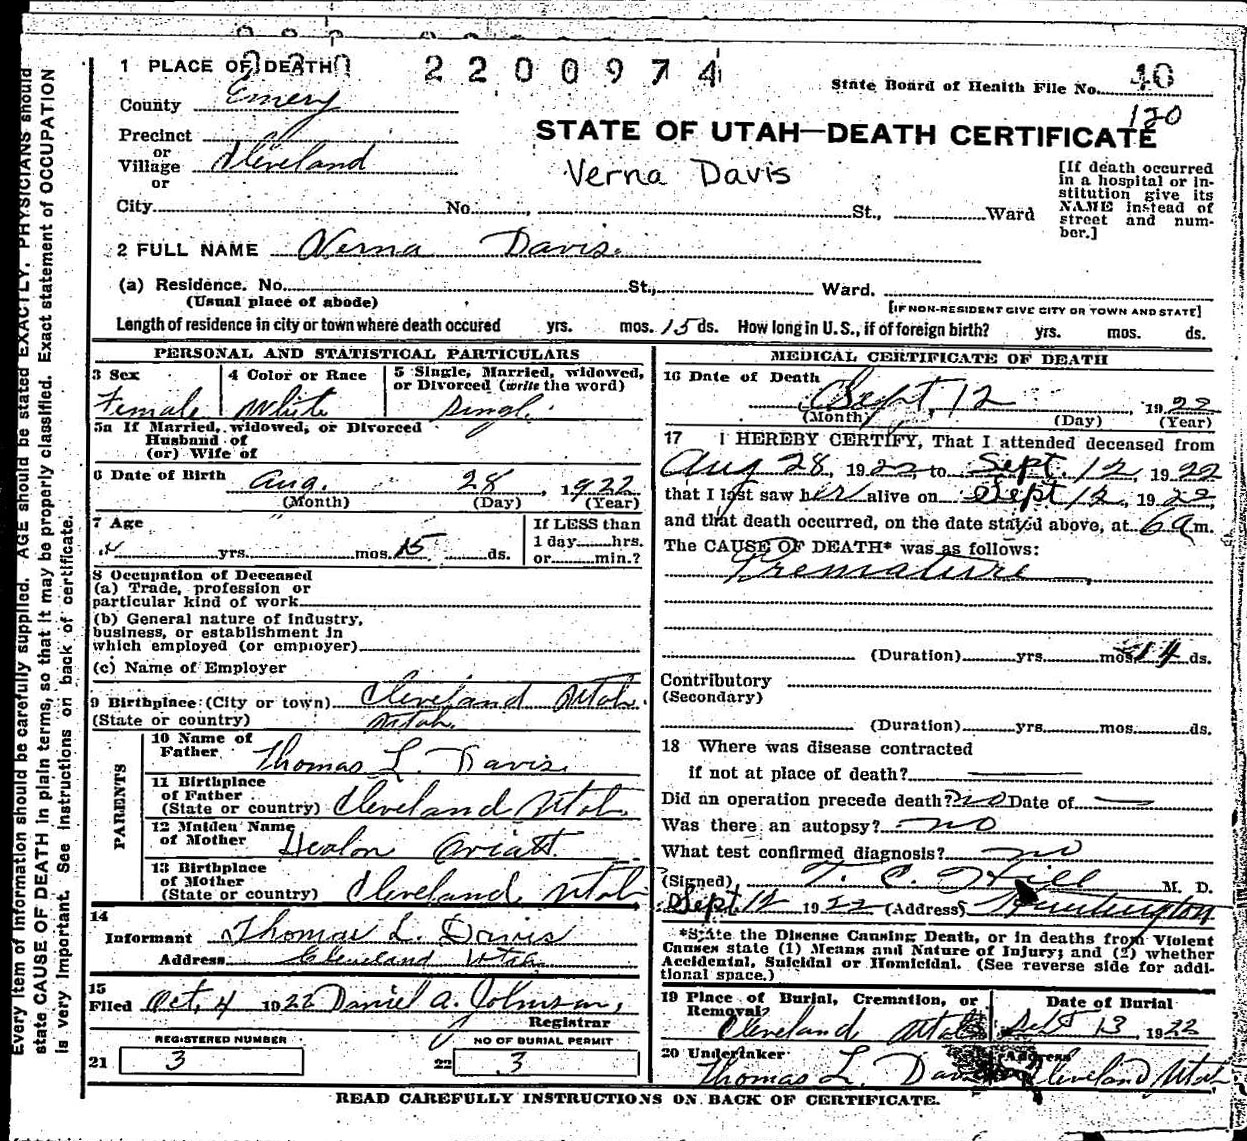 2200974
1 PLACE OF DEATH
State Board of Health File No. 40
County Emery
120
STATE OF UTAH—DEATH CERTIFICATE
Precinct
or
Village Cleveland
or
Verna Davis
[If death occurred
in a hospital or in-
stitution give its
NAME instead of
street and num-
ber.]
City No. , St., Ward
2 FULL NAME Verna Davis.
(a) Residence. No. St., Ward.
(Usual place of abode) [IF NON-RESIDENT GIVE CITY OR TOWN AND STATE]
Length of residence in city or town where death occured yrs. mos. 15 ds. How long in U. S., if of foreign birth? yrs. mos. ds.
PERSONAL AND STATISTICAL PARTICULARS
3 Sex Female
4 Color or Race White
5 Single, Married, widowed,
or Divorced (write the word)
Singl.
5a If Married, widowed, or Divorced
Husband of
(or) Wife of
6 Date of Birth Aug. 28, 1922
(Month) (Day) (Year)
7 Age
yrs. mos. 15 ds.
If LESS than
1 day hrs.
or min.?
8 Occupation of Deceased
(a) Trade, profession or
particular kind of work
(b) General nature of Industry,
business, or establishment in
which employed (or employer)
(c) Name of Employer
9 Birthplace (City or town) Cleveland Utah.
(State or country) Utah.
PARENTS
10 Name of
Father Thomas L. Davis.
11 Birthplace
of Father
(State or country) Cleveland Utah
12 Maiden Name
of Mother Oviatt.
13 Birthplace
of Mother
(State or country) Cleveland, Utah
14
Informant Thomas L. Davis
Address Cleveland Utah
15
Filed Oct, 4 1922 Daniel A. Johnson,
Registrar
REGISTERED NUMBER NO OF BURIAL PERMIT
21 3 22 3
MEDICAL CERTIFICATE OF DEATH
16 Date of Death
Sept, 12 1922
(Month) (Day) (Year)
17 I HEREBY CERTIFY, That I attended deceased from
Aug 28, 1922, to Sept. 12, 1922
that I last saw her alive on Sept 12, 1922
and that death occurred, on the date stated above, at 6 a m.
The CAUSE OF DEATH* was as follows:
Premature
(Duration) yrs. mos. 14 ds.
Contributory
(Secondary)
(Duration) yrs. mos. ds.
18 Where was disease contracted
if not at place of death?
Did an operation precede death? no Date of —
Was there an autopsy? no
What test confirmed diagnosis? no
(Signed) T. C. Hill M. D.
Sept. 12 1922 (Address) Huntington
*State the Disease Causing Death, or in deaths from Violent
Causes state (1) Means and Nature of Injury; and (2) whether
Accidental, Suicidal or Homicidal. (See reverse side for addi-
tional space.)
19 Place of Burial, Cremation, or
Removal? Cleveland Utah
Date of Burial
Sept 13, 1922
20 Undertaker Address
Thomas L. Davis Cleveland, Utah
READ CAREFULLY INSTRUCTIONS ON BACK OF CERTIFICATE.
Every item of information should be carefully supplied. AGE should be stated EXACTLY. PHYSICIANS should
state CAUSE OF DEATH in plain terms, so that it may be properly classified. Exact statement of OCCUPATION
is very important. See instructions on back of certificate.